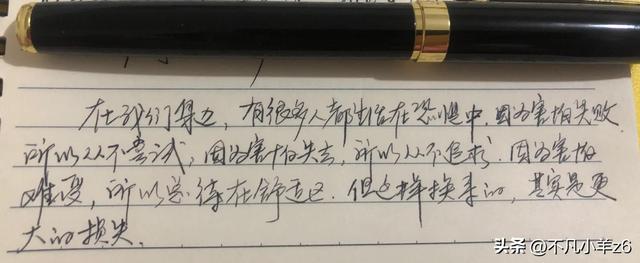 在我们身边，有很多人都生活在恐惧中，因为害怕失败
所以从不尝试，因为害怕失去，所以从不追求，因为害怕
难受，所以总待在舒适区．但这样换来的，其实是更
大的损失．
头条 @不凡小羊z6